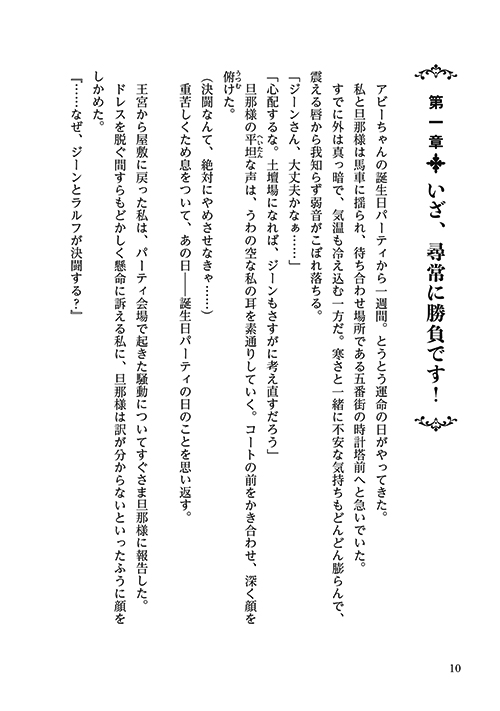 第一章 いざ、尋常に勝負です！
アビーちゃんの誕生日パーティから一週間。とうとう運命の日がやってきた。
私と旦那様は馬車に揺られ、待ち合わせ場所である五番街の時計塔前へと急いでいた。
すでに外は真っ暗で、気温も冷え込む一方だ。寒さと一緒に不安な気持ちもどんどん膨らんで、
震える唇から我知らず弱音がこぼれ落ちる。
「ジーンさん、大丈夫かなぁ……」
「心配するな。土壇場になれば、ジーンもさすがに考え直すだろう」
旦那様の平坦な声は、うわの空な私の耳を素通りしていく。コートの前をかき合わせ、深く顔を
俯けた。
（決闘なんて、絶対にやめさせなきゃ……）
重苦しくため息をついて、あの日――誕生日パーティの日のことを思い返す。
王宮から屋敷に戻った私は、パーティ会場で起きた騒動についてすぐさま旦那様に報告した。
ドレスを脱ぐ間すらもどかしく懸命に訴える私に、旦那様は訳が分からないといったふうに顔を
しかめた。
『……なぜ、ジーンとラルフが決闘する？』
10